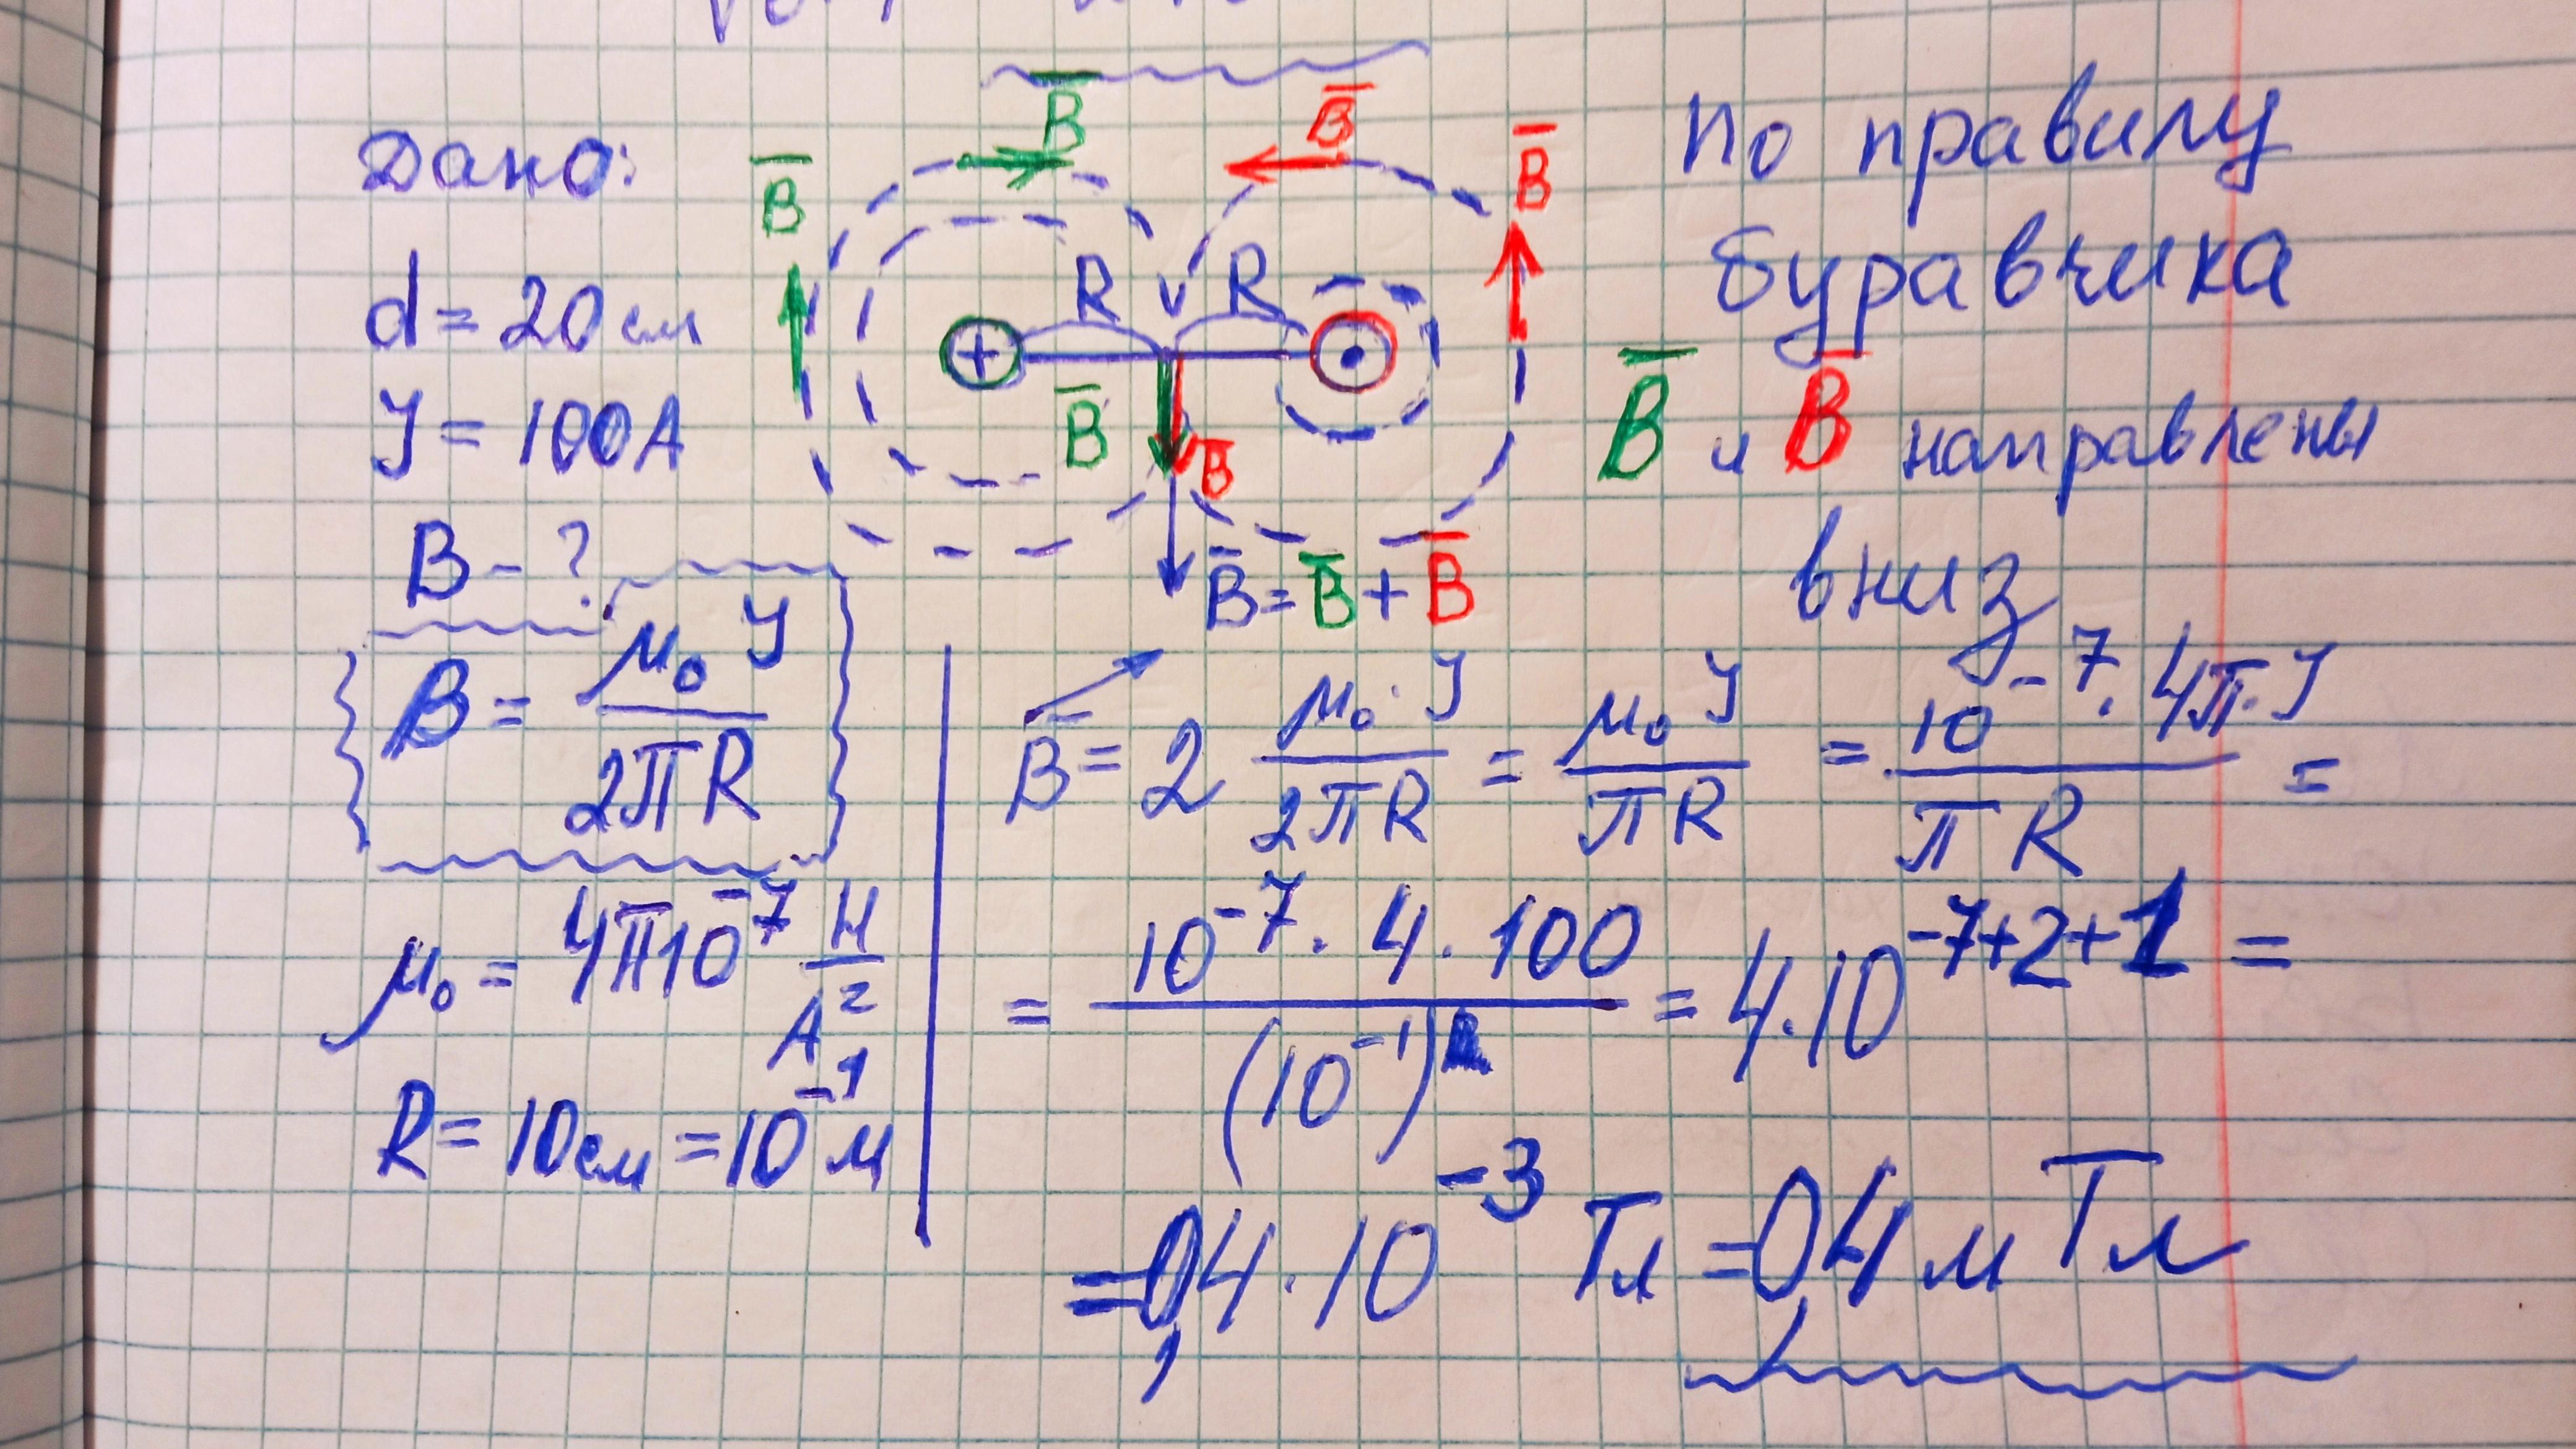 Дано:
d = 20 см
J = 100 А
B - ?
B = μ₀ J / 2πR
μ₀ = 4π10⁻⁷ Н/А²
R = 10 см = 10⁻¹ м
B̅
B̅
B̅
B̅
R R
+
B̅
B̅
B̅ = B̅ + B̅
По правилу
буравчика
B̅ и B̅ направлены
вниз
B̅ = 2 μ₀ · J / 2πR = μ₀ J / πR = 10⁻⁷ · 4π · J / πR =
= 10⁻⁷ · 4 · 100 / (10⁻¹) = 4 · 10⁻⁷⁺²⁺¹ =
= 0,4 · 10⁻³ Тл = 0,4 мТл